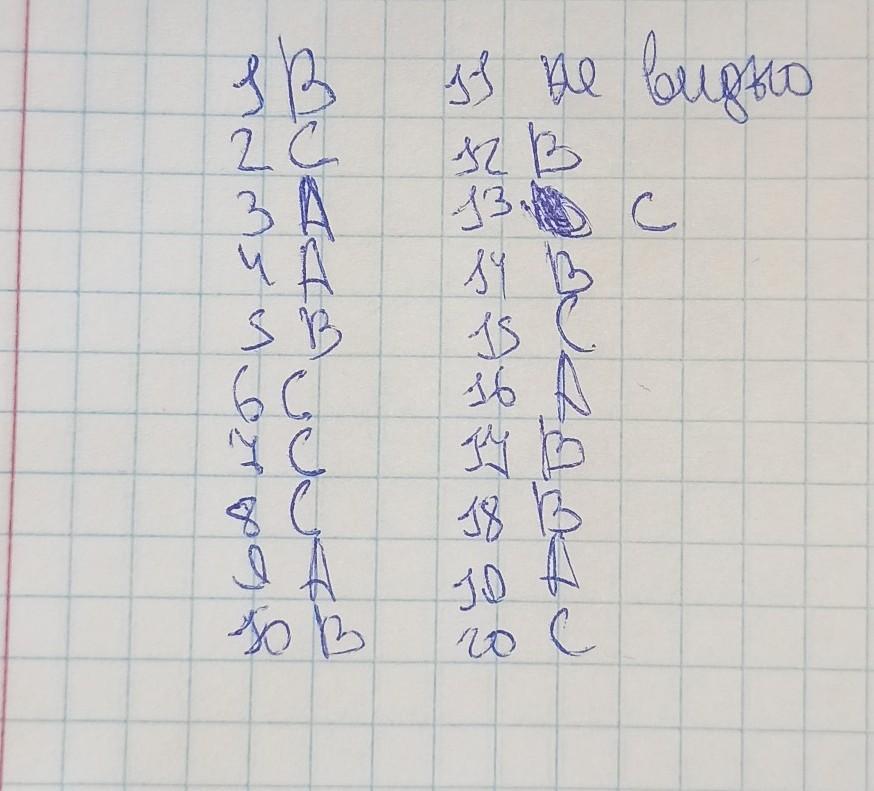 1 B
2 C
3 A
4 A
5 B
6 C
7 C
8 C
9 A
10 B
11 не видно
12 B
13. C
14 B
15 C
16 A
17 B
18 B
19 A
20 C